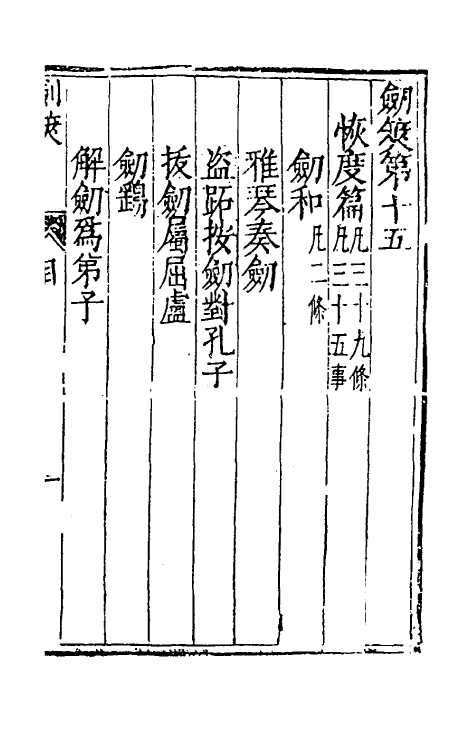 劎筴第十五
恢度篇凡三十九條凡三十五事
劎和凡二條
雅琴奏劎
盜跖按劎對孔子
拔劎屬屈盧
劎
解劎爲弟子
目
一